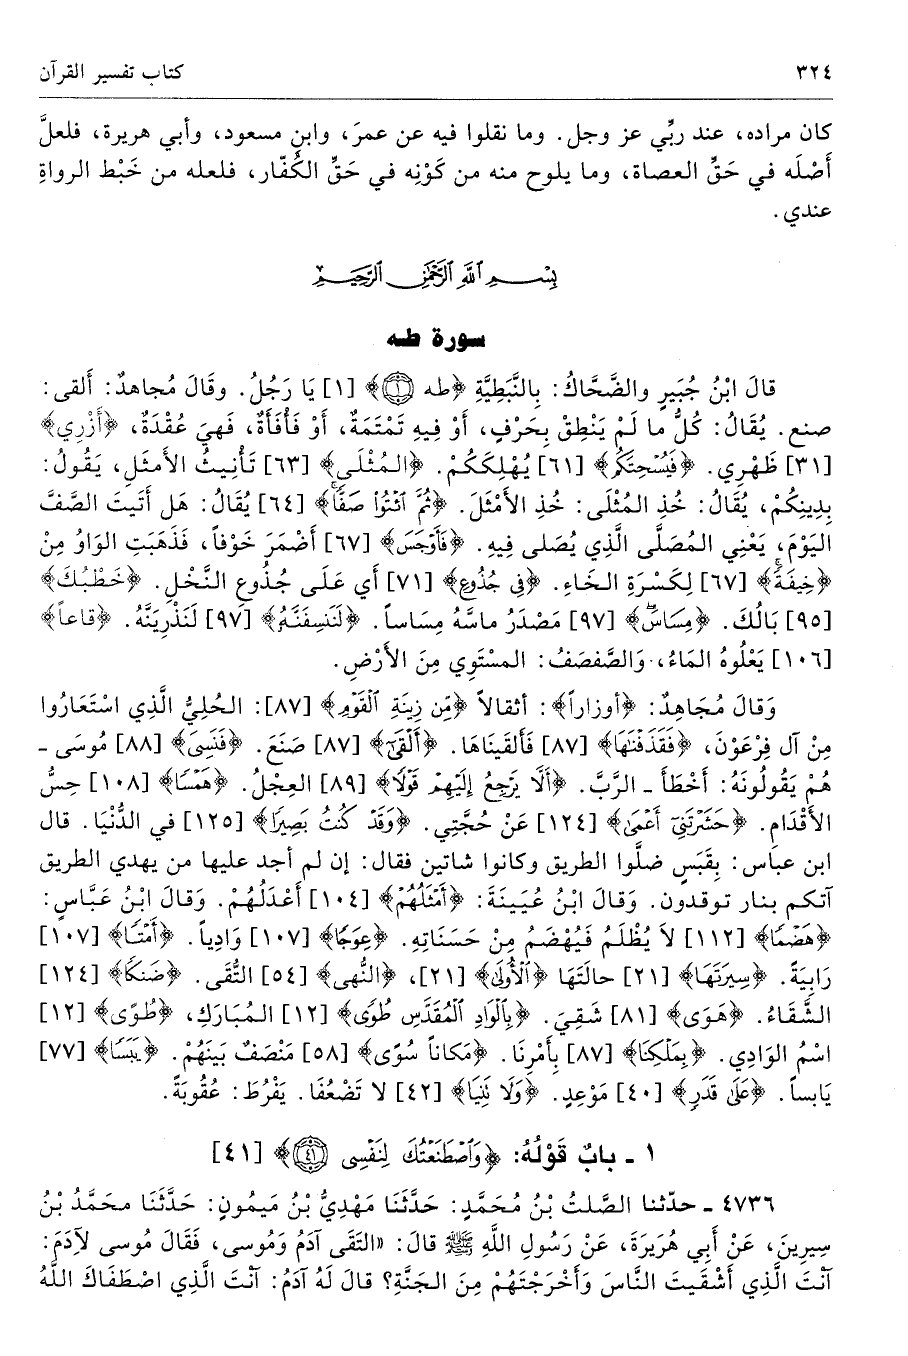 ٣٢٤ كتاب تفسير القرآن
كان مراده، عند ربِّي عز وجل. وما نقلوا فيه عن عمرَ، وابنِ مسعود، وأبي هريرة، فلعلَّ
أَصْلَه في حَقِّ العصاة، وما يلوح منه من كَوْنِه في حَقِّ الكُفّار، فلعله من خَبْط الرواةِ
عندي.
بِسْمِ ٱللَّهِ ٱلرَّحْمَٰنِ ٱلرَّحِيمِ
سورة طه
قالَ ابْنُ جُبَيرٍ والضَّحَّاكُ: بِالنَّبَطِيَّةِ ﴿طه ۝١﴾ [١] يَا رَجُلُ. وقَالَ مُجاهدٌ: أَلقى:
صنع. يُقَالُ: كُلُّ ما لَمْ يَنْطِقْ بِحَرْفٍ، أَوْ فِيهِ تَمْتَمَةٌ، أَوْ فَأْفَأَةٌ، فَهِيَ عُقْدَةٌ، ﴿أَزْرِي﴾
[٣١] ظَهْرِي. ﴿فَيُسْحِتَكُم﴾ [٦١] يُهْلِكَكُمْ. ﴿المُثْلَى﴾ [٦٣] تَأْنِيثُ الأَمثَلِ، يَقُولُ:
بِدِينِكُمْ، يُقَالُ: خُذِ المُثْلَى: خُذِ الأَمْثَلَ. ﴿ثُمَّ ٱئْتُوا۟ صَفًّا﴾ [٦٤] يُقَالُ: هَل أَتَيتَ الصَّفَّ
اليَوْمَ، يَعْنِي المُصَلَّى الَّذِي يُصَلى فِيهِ. ﴿فَأَوْجَسَ﴾ [٦٧] أَضْمَرَ خَوْفاً، فَذَهَبَتِ الوَاوُ مِنْ
﴿خِيفَةً﴾ [٦٧] لِكَسْرَةِ الخَاءِ. ﴿فِي جُذُوعِ﴾ [٧١] أَي عَلَى جُذُوعِ النَّخْلِ. ﴿خَطْبُكَ﴾
[٩٥] بَالُكَ. ﴿مِسَاسَ﴾ [٩٧] مَصْدَرُ ماسَّهُ مِسَاساً. ﴿لَنَنسِفَنَّهُ﴾ [٩٧] لَنَذْرِيَنَّهُ. ﴿قاعاً﴾
[١٠٦] يَعْلُوهُ المَاءُ، وَالصَّفصَفُ: المسْتَوِي مِنَ الأَرْضِ.
وَقالَ مُجَاهِدٌ: ﴿أوزاراً﴾: أثقالاً ﴿مِّن زِينَةِ ٱلْقَوْمِ﴾ [٨٧]: الحُلِيُّ الَّذِي اسْتَعَارُوا
مِنْ آلِ فِرْعَوْنَ، ﴿فَقَذَفْنَٰهَا﴾ [٨٧] فَأَلقَينَاهَا. ﴿أَلْقَىٰٓ﴾ [٨٧] صَنَعَ. ﴿فَنَسِىَ﴾ [٨٨] مُوسَى ـ
هُمْ يَقُولُونَهُ: أَخْطَأَ ـ الرَّبَّ. ﴿أَلَّا يَرْجِعُ إِلَيْهِمْ قَوْلًا﴾ [٨٩] العِجْلُ. ﴿هَمْسًا﴾ [١٠٨] حِسُّ
الأَقْدَامِ. ﴿حَشَرْتَنِىٓ أَعْمَىٰ﴾ [١٢٤] عَنْ حُجَّتِي. ﴿وَقَدْ كُنتُ بَصِيرًا﴾ [١٢٥] في الدُّنْيَا. قال
ابن عباس: بِقَبَسٍ ضلُّوا الطريق وكانوا شاتين فقال: إن لم أجد عليها من يهدي الطريق
آتكم بنار توقدون. وَقَالَ ابْنُ عُيَينَةَ: ﴿أَمْثَلُهُمْ﴾ [١٠٤] أَعْدَلُهُمْ. وَقَالَ ابْنُ عَبَّاسٍ:
﴿هَضْمًا﴾ [١١٢] لاَ يُظْلَمُ فَيُهْضَمُ مِنْ حَسَنَاتِهِ. ﴿عِوَجًا﴾ [١٠٧] وَادِياً. ﴿أَمْتًا﴾ [١٠٧]
رَابِيَةً. ﴿سِيرَتَهَا﴾ [٢١] حالَتَهَا ﴿ٱلْأُولَىٰ﴾ [٢١]، ﴿النُّهى﴾ [٥٤] التُّقَى. ﴿ضَنكًا﴾ [١٢٤]
الشَّقَاءُ. ﴿هَوَى﴾ [٨١] شَقِيَ. ﴿بِٱلْوَادِ ٱلْمُقَدَّسِ طُوًى﴾ [١٢] المُبَارَكِ، ﴿طُوًى﴾ [١٢]
اسْمُ الوَادِي. ﴿بِمَلْكِنَا﴾ [٨٧] بِأَمْرِنَا. ﴿مَكاناً سُوًى﴾ [٥٨] مَنْصَفٌ بَينَهُمْ. ﴿يَبَسًا﴾ [٧٧]
يَابساً. ﴿عَلَىٰ قَدَرٍ﴾ [٤٠] مَوْعِدٍ. ﴿وَلَا تَنِيَا﴾ [٤٢] لا تَضْعُفَا. يَفْرُطَ: عُقُوبَةً.
١ ـ بابُ قَوْلُهُ: ﴿وَٱصْطَنَعْتُكَ لِنَفْسِى ۝٤١﴾ [٤١]
٤٧٣٦ ـ حدّثنا الصَّلتُ بْنُ مُحَمَّدٍ: حَدَّثَنَا مَهْدِيُّ بْنُ مَيمُونٍ: حَدَّثَنَا محَمَّدُ بْنُ
سِيرِينَ، عَنْ أَبِي هُرَيرَةَ، عَنْ رَسُولِ اللَّهِ ﷺ قالَ: «التَقَى آدَمُ وَمُوسى، فَقَالَ مُوسى لآدَمَ:
آنْتَ الَّذِي أَشْقَيتَ النَّاسَ وَأَخْرَجْتَهُمْ مِنَ الجَنَّةِ؟ قالَ لَهُ آدَمُ: آنْتَ الَّذِي اصْطَفَاكَ اللَّهُ